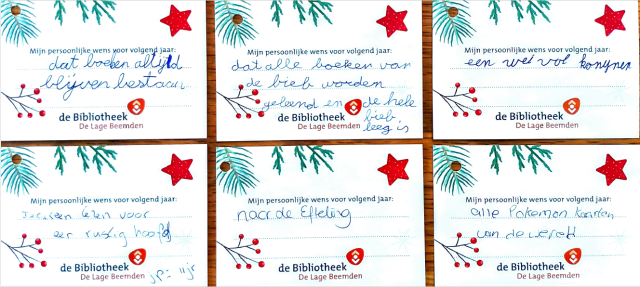 Mijn persoonlijke wens voor volgend jaar:
dat boeken altijd
blijven bestaan
de Bibliotheek
De Lage Beemden
Mijn persoonlijke wens voor volgend jaar:
dat alle boeken van
de bieb worden
geleend en de hele
bieb
leeg is
de Bibliotheek
De Lage Beemden
Mijn persoonlijke wens voor volgend jaar:
een wei vol konijnen
de Bibliotheek
De Lage Beemden
Mijn persoonlijke wens voor volgend jaar:
leren lezen voor
een rustig hoofd
de Bibliotheek
De Lage Beemden
Mijn persoonlijke wens voor volgend jaar:
naar de Efteling
de Bibliotheek
De Lage Beemden
Mijn persoonlijke wens voor volgend jaar:
alle Pokemon kaarten
van de wereld
de Bibliotheek
De Lage Beemden